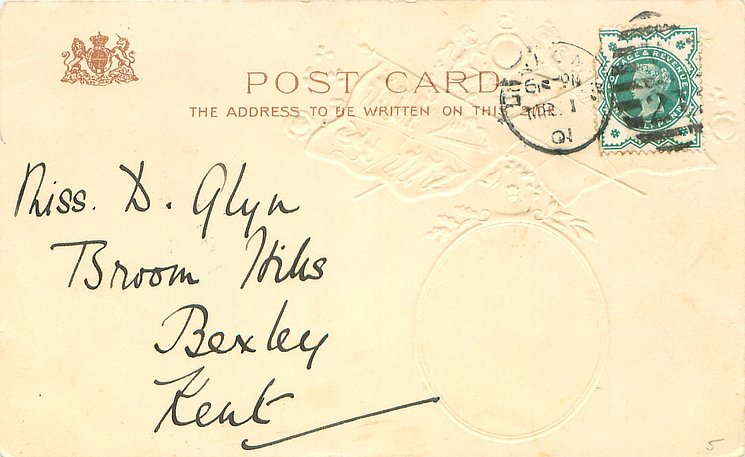 POST CARD
THE ADDRESS TO BE WRITTEN ON THIS
POSTAGE & REVENUE
MR 1
01
Miss. D. Glyn
Broom Hills
Bexley
Kent
5